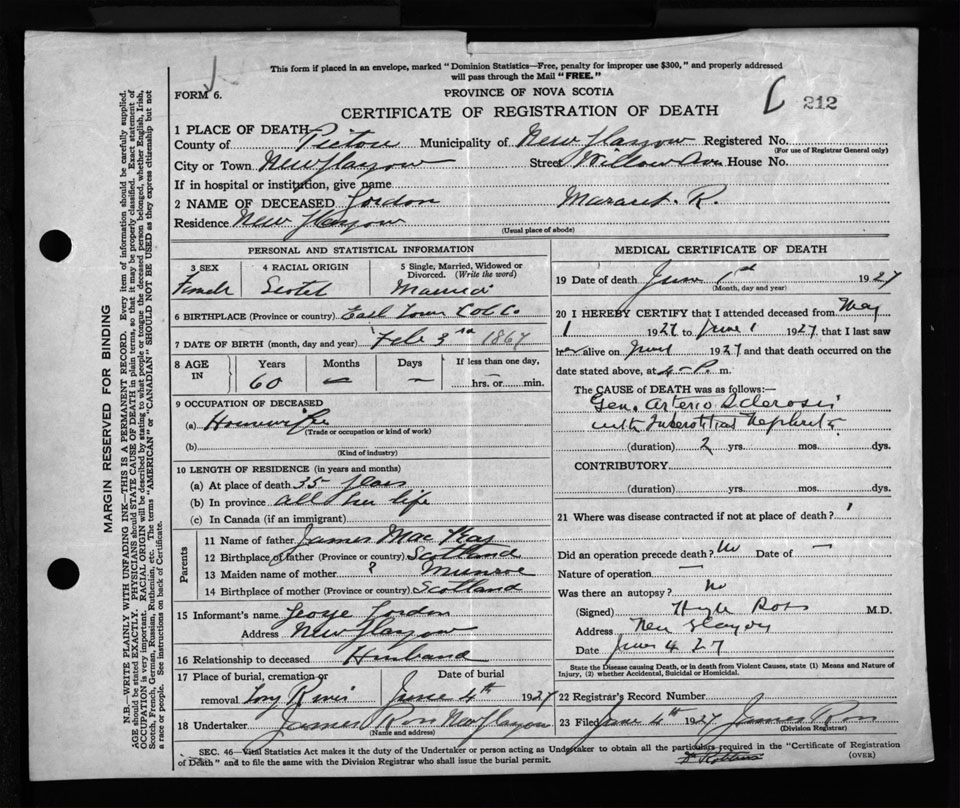 This form if placed in an envelope, marked "Dominion Statistics—Free, penalty for improper use $300," and properly addressed
will pass through the Mail "FREE."
FORM 6.
PROVINCE OF NOVA SCOTIA
CERTIFICATE OF REGISTRATION OF DEATH
212
1 PLACE OF DEATH
County of Pictou Municipality of New Glasgow Registered No.
(For use of Registrar General only)
City or Town New Glasgow Street Willow Ave House No.
If in hospital or institution, give name
2 NAME OF DECEASED Gordon Margret. R.
Residence New Glasgow
(Usual place of abode)
PERSONAL AND STATISTICAL INFORMATION
3 SEX 4 RACIAL ORIGIN 5 Single, Married, Widowed or
Divorced. (Write the word)
Female Scotch Married
6 BIRTHPLACE (Province or country) Earl Town Col. Co.
7 DATE OF BIRTH (month, day and year) Feb 3rd 1867
8 AGE IN Years Months Days If less than one day,
60 — — hrs. or min.
9 OCCUPATION OF DECEASED
(a) Housewife
(Trade or occupation or kind of work)
(b)
(Kind of industry)
10 LENGTH OF RESIDENCE (in years and months)
(a) At place of death 35 years
(b) In province all her life
(c) In Canada (if an immigrant)
Parents
11 Name of father James MacKay
12 Birthplace of father (Province or country) Scotland
13 Maiden name of mother ? Munroe
14 Birthplace of mother (Province or country) Scotland
15 Informant's name George Gordon
Address New Glasgow
16 Relationship to deceased Husband
17 Place of burial, cremation or Date of burial
removal June 4th 1927
18 Undertaker James Ross New Glasgow
(Name and address)
MEDICAL CERTIFICATE OF DEATH
19 Date of death June 1st 1927
(Month, day and year)
20 I HEREBY CERTIFY that I attended deceased from May
1 1927 to June 1 1927 that I last saw
her alive on June 1 1927 and that death occurred on the
date stated above, at 4 P. m.
The CAUSE of DEATH was as follows:—
Gen. Arterio Sclerosis
with Interstitial Nephritis
(duration) 2 yrs. mos. dys.
CONTRIBUTORY
(duration) yrs. mos. dys.
21 Where was disease contracted if not at place of death?
Did an operation precede death? No Date of —
Nature of operation —
Was there an autopsy? No
(Signed) Hugh Ross M.D.
Address New Glasgow
Date June 4 27
State the Disease causing Death, or in death from Violent Causes, state (1) Means and Nature of
Injury, (2) whether Accidental, Suicidal or Homicidal.
22 Registrar's Record Number
23 Filed June 4th 1927 James Ross
(Division Registrar)
SEC. 46—Vital Statistics Act makes it the duty of the Undertaker or person acting as Undertaker to obtain all the particulars required in the "Certificate of Registration
of Death" and to file the same with the Division Registrar who shall issue the burial permit.
(OVER)
MARGIN RESERVED FOR BINDING
N.B.—WRITE PLAINLY WITH UNFADING INK—THIS IS A PERMANENT RECORD. Every item of information should be carefully supplied.
AGE should be stated EXACTLY. PHYSICIANS should STATE CAUSE OF DEATH in plain terms, so that it may be properly classified. Exact statement of
OCCUPATION is very important. RACIAL ORIGIN will be described by stating to what people or tongue the deceased person belonged, whether English, Irish,
Scotch, French, German, Russian, Ruthenian, etc. The terms "AMERICAN" or "CANADIAN" SHOULD NOT BE USED as they express citizenship but not
a race or people. See instructions on back of Certificate.